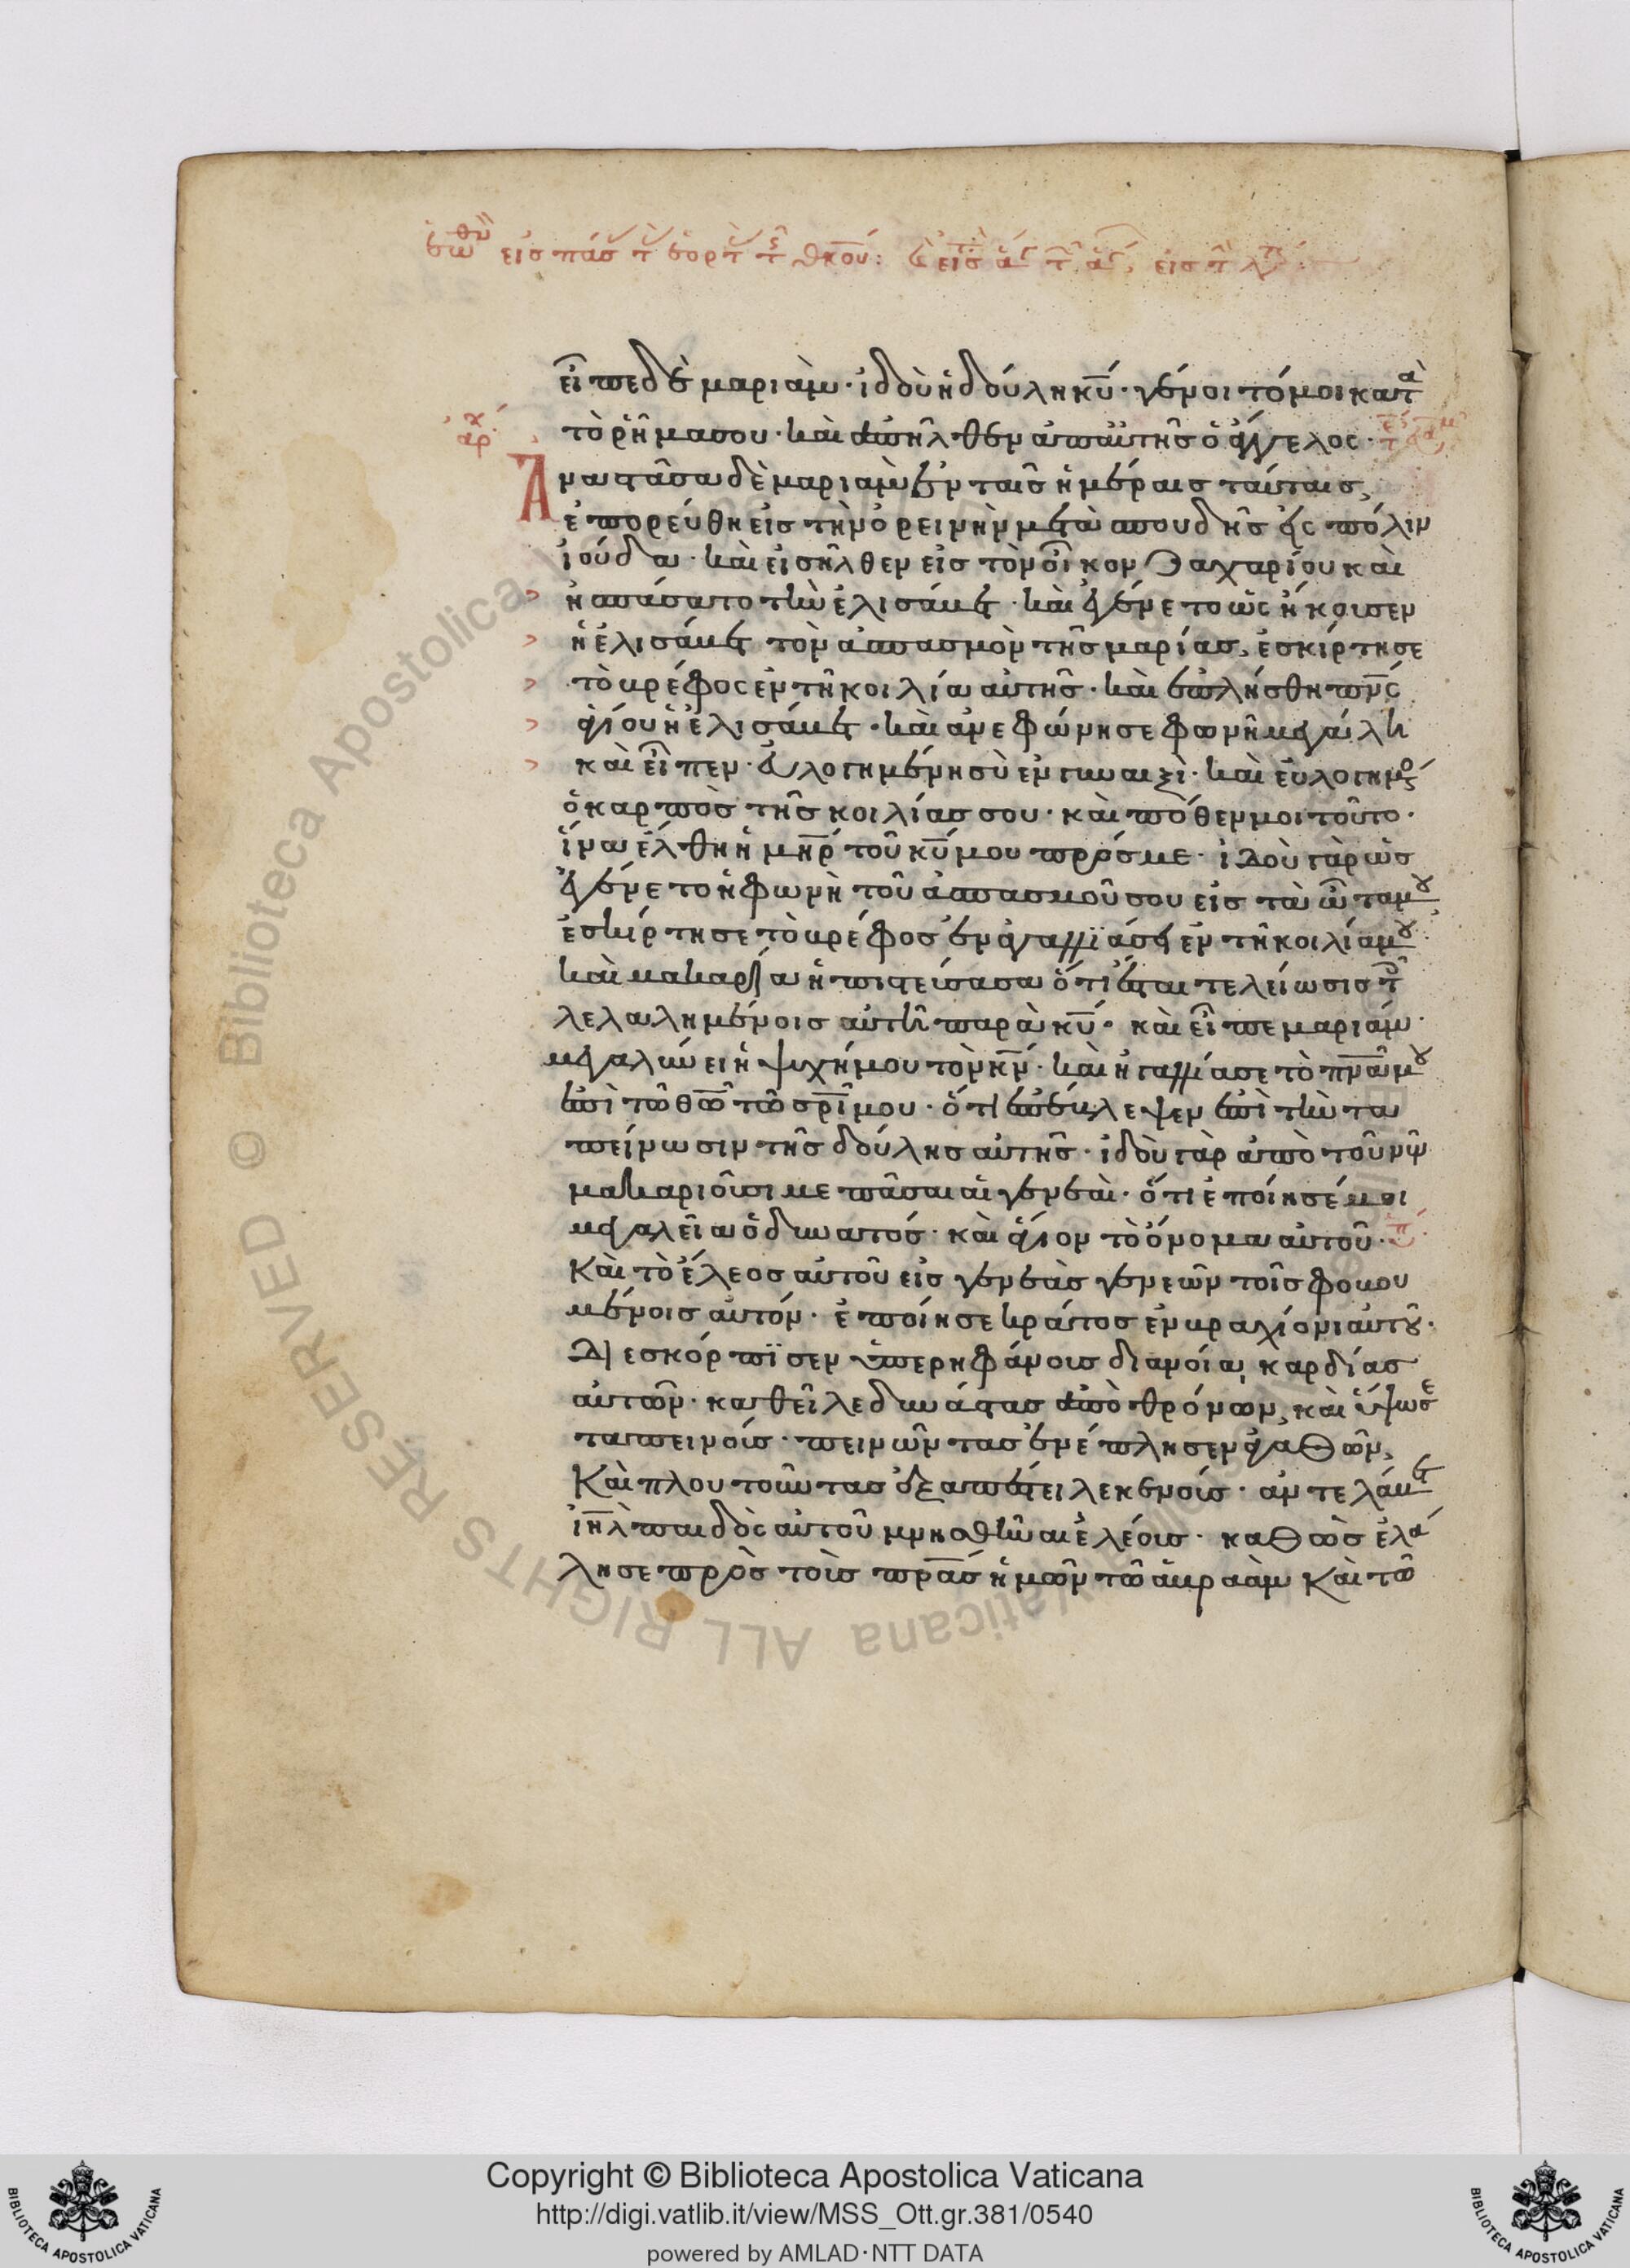 εἶπε δὲ μαριάμ· ἰδοὺ ἡ δούλη κ̅υ̅· γένοιτό μοι κατὰ
τὸ ῥῆμα σου· καὶ ἀπῆλθεν ἀπ' αὐτῆς ὁ ἄγγελος·
Ἀναστᾶσα δὲ μαριὰμ ἐν ταῖς ἡμέραις ταύταις,
ἐπορεύθη εἰς τὴν ὀρεινὴν μετὰ σπουδῆς εἰς πόλιν
ἰούδα· καὶ εἰσῆλθεν εἰς τὸν οἶκον Ζαχαρίου καὶ
ἠσπάσατο τὴν ἐλισάβετ· καὶ ἐγένετο ὡς ἤκουσεν
ἡ ἐλισάβετ τὸν ἀσπασμὸν τῆς μαρίας, ἐσκίρτησε
τὸ βρέφος ἐν τῇ κοιλία αὐτῆς· καὶ ἐπλήσθη π̅ν̅ς̅
ἁγίου ἡ ἐλισάβετ· καὶ ἀνεφώνησε φωνῇ μεγάλη
καὶ εἶπεν· εὐλογημένη σὺ ἐν γυναιξὶ· καὶ εὐλογημένος
ὁ καρπὸς τῆς κοιλίας σου· καὶ πόθεν μοι τοῦτο·
ἵνα ἔλθη ἡ μ̅η̅ρ̅ τοῦ κ̅υ̅ μου πρός με· ἰδοὺ γὰρ ὡς
ἐγένετο ἡ φωνὴ τοῦ ἀσπασμοῦ σου εἰς τὰ ὦτα μου,
ἐσκίρτησε τὸ βρέφος ἐν ἀγαλλϊάσει ἐν τῇ κοιλία μου·
καὶ μακαρία ἡ πιστεύσασα ὅτι ἔσται τελείωσις τοῖς
λελαλημένοις αὐτῇ παρὰ κ̅υ̅· καὶ εἶπε μαριάμ·
μεγαλύνει ἡ ψυχή μου τὸν κ̅ν̅· καὶ ἠγαλλίασε τὸ π̅ν̅α̅ μου
ἐπὶ τῶ θ̅ω̅ τῶ σ̅ρ̅ι̅ μου· ὅτι ἐπέβλεψεν ἐπὶ τὴν τα
πείνωσιν τῆς δούλης αὐτῆς· ἰδοὺ γὰρ ἀπὸ τοῦ νῦν
μακαριοῦσι με πᾶσαι αἱ γενεαὶ· ὅτι ἐποίησέ μοι
μεγαλεῖα ὁ δυνατός· καὶ ἅγιον τὸ ὄνομα αὐτοῦ·
Καὶ τὸ ἔλεος αὐτοῦ εἰς γενεὰς γενεῶν τοῖς φοβου
μένοις αὐτόν· ἐποίησε κράτος ἐν βραχίονι αὐτοῦ·
Διεσκόρπϊσεν ὑπερηφάνους διανοία, καρδίας
αὐτῶν· καθεῖλε δυνάστας ἀπὸ θρόνων, καὶ ὕψωσε
ταπεινούς· πεινῶντας ἐνέπλησεν ἀγαθῶν,
Καὶ πλουτοῦντας ἐξαπέστειλε κενούς· ἀντελάβετο
ἰ̅η̅λ̅ παιδὸς αὐτοῦ μνησθῆναι ἐλέους· καθὼς ἐλά
λησε πρὸς τοὺς π̅ρ̅α̅ς̅ ἡμῶν τῶ ἀβραὰμ καὶ τῶ
Copyright © Biblioteca Apostolica Vaticana
http://digi.vatlib.it/view/MSS_Ott.gr.381/0540
powered by AMLAD·NTT DATA